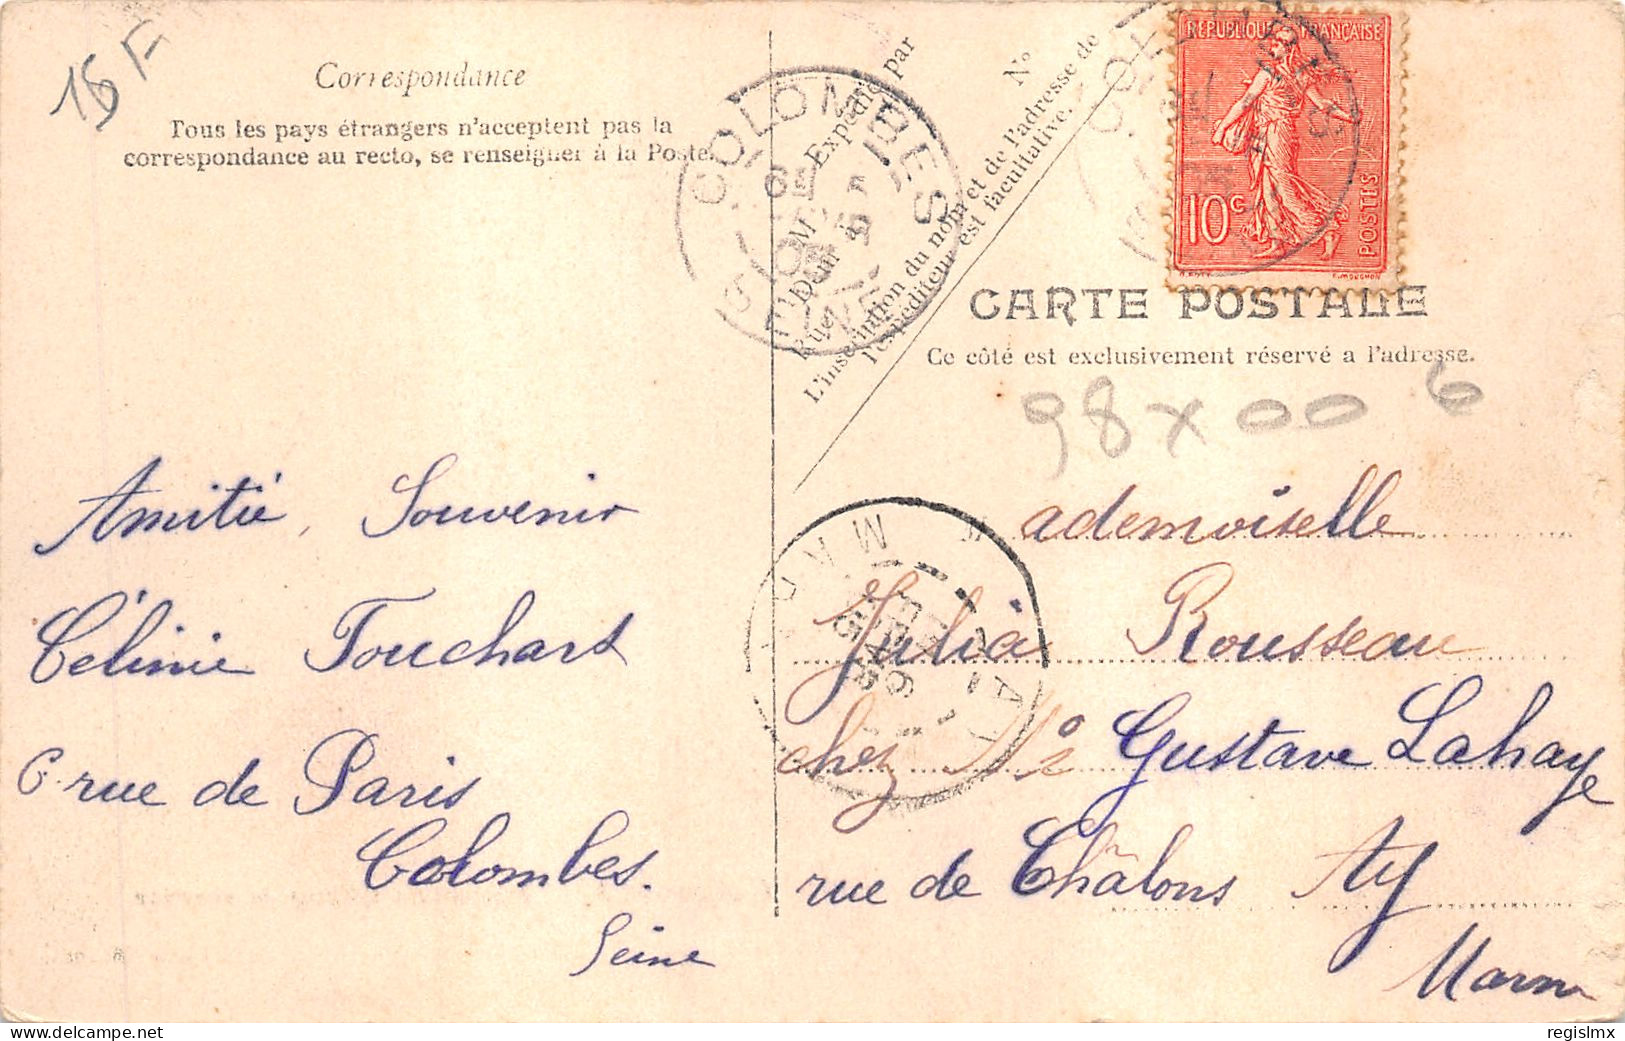 18 F
Correspondance
Tous les pays étrangers n'acceptent pas la
correspondance au recto, se renseigner à la Poste.
Amitié, Souvenir
Célinie Touchart
6 rue de Paris
Colombes.
Seine
Expédié par
M
Demt à
Rue
Nº
L'inscription du nom et de l'adresse de
l'expéditeur est facultative.
COLOMBES
SEINE
REPUBLIQUE FRANÇAISE
10c
POSTES
CARTE POSTALE
Ce côté est exclusivement réservé a l'adresse.
98 x 00 6
Mademoiselle
Julia Rousseau
chez Mr Gustave Lahaye
rue de Châlons Ay
Marne
delcampe.net
regislmx